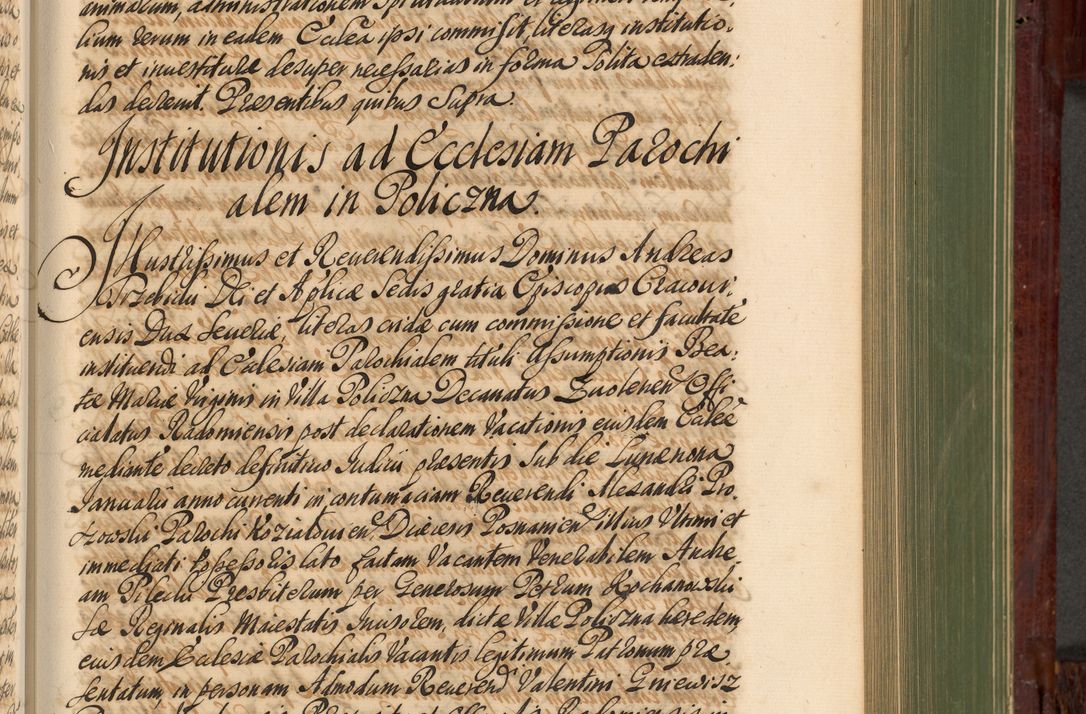 lium rerum in eadem Ecclea ipsi commisit, literasq institutio,
nis et investiturae desuper necessarias in forma solita extraden:
das decrevit. Praesentibus quibus Supra.
Institutionis ad Ecclesiam Parochi
alem in Policzna.
Illustrissimus et Reverendissimus Dominus Andreas
Trzebicki Dei et Aplicae Sedis gratia Episcopus Cracovi,
ensis Dux Severiae, literas cum commissione et facultate
instituendi ad Ecclesiam Parochialem tituli Assumptionis Bea,
tae Mariae Virginis in Villa Policzna Decanatus Zwolenen Offi
cialatus Radomiensis post declarationem Vacationis eiusdem Eccleae
mediante decreto definitivo Iudicii praesentis sub die Lunae nona
Ianuarii anno currenti in contumaciam Reverendi Alexandri Pro,
Parochi Dioecesis Posnanien illius Ultimi et
immediati Possessoris lato factam Vacantem Venerabilem Andre
am Pilecki Presbiterum per Generosum Petrum Kochanowski
Sae Regionalis Maiestatis dictae Villae Policzna heredem,
eiusdem Ecclesiae Parochialis Vacantis legitimum Patronum prae
sentatum, in personam Admodum Reverend Valentini Gniewisz